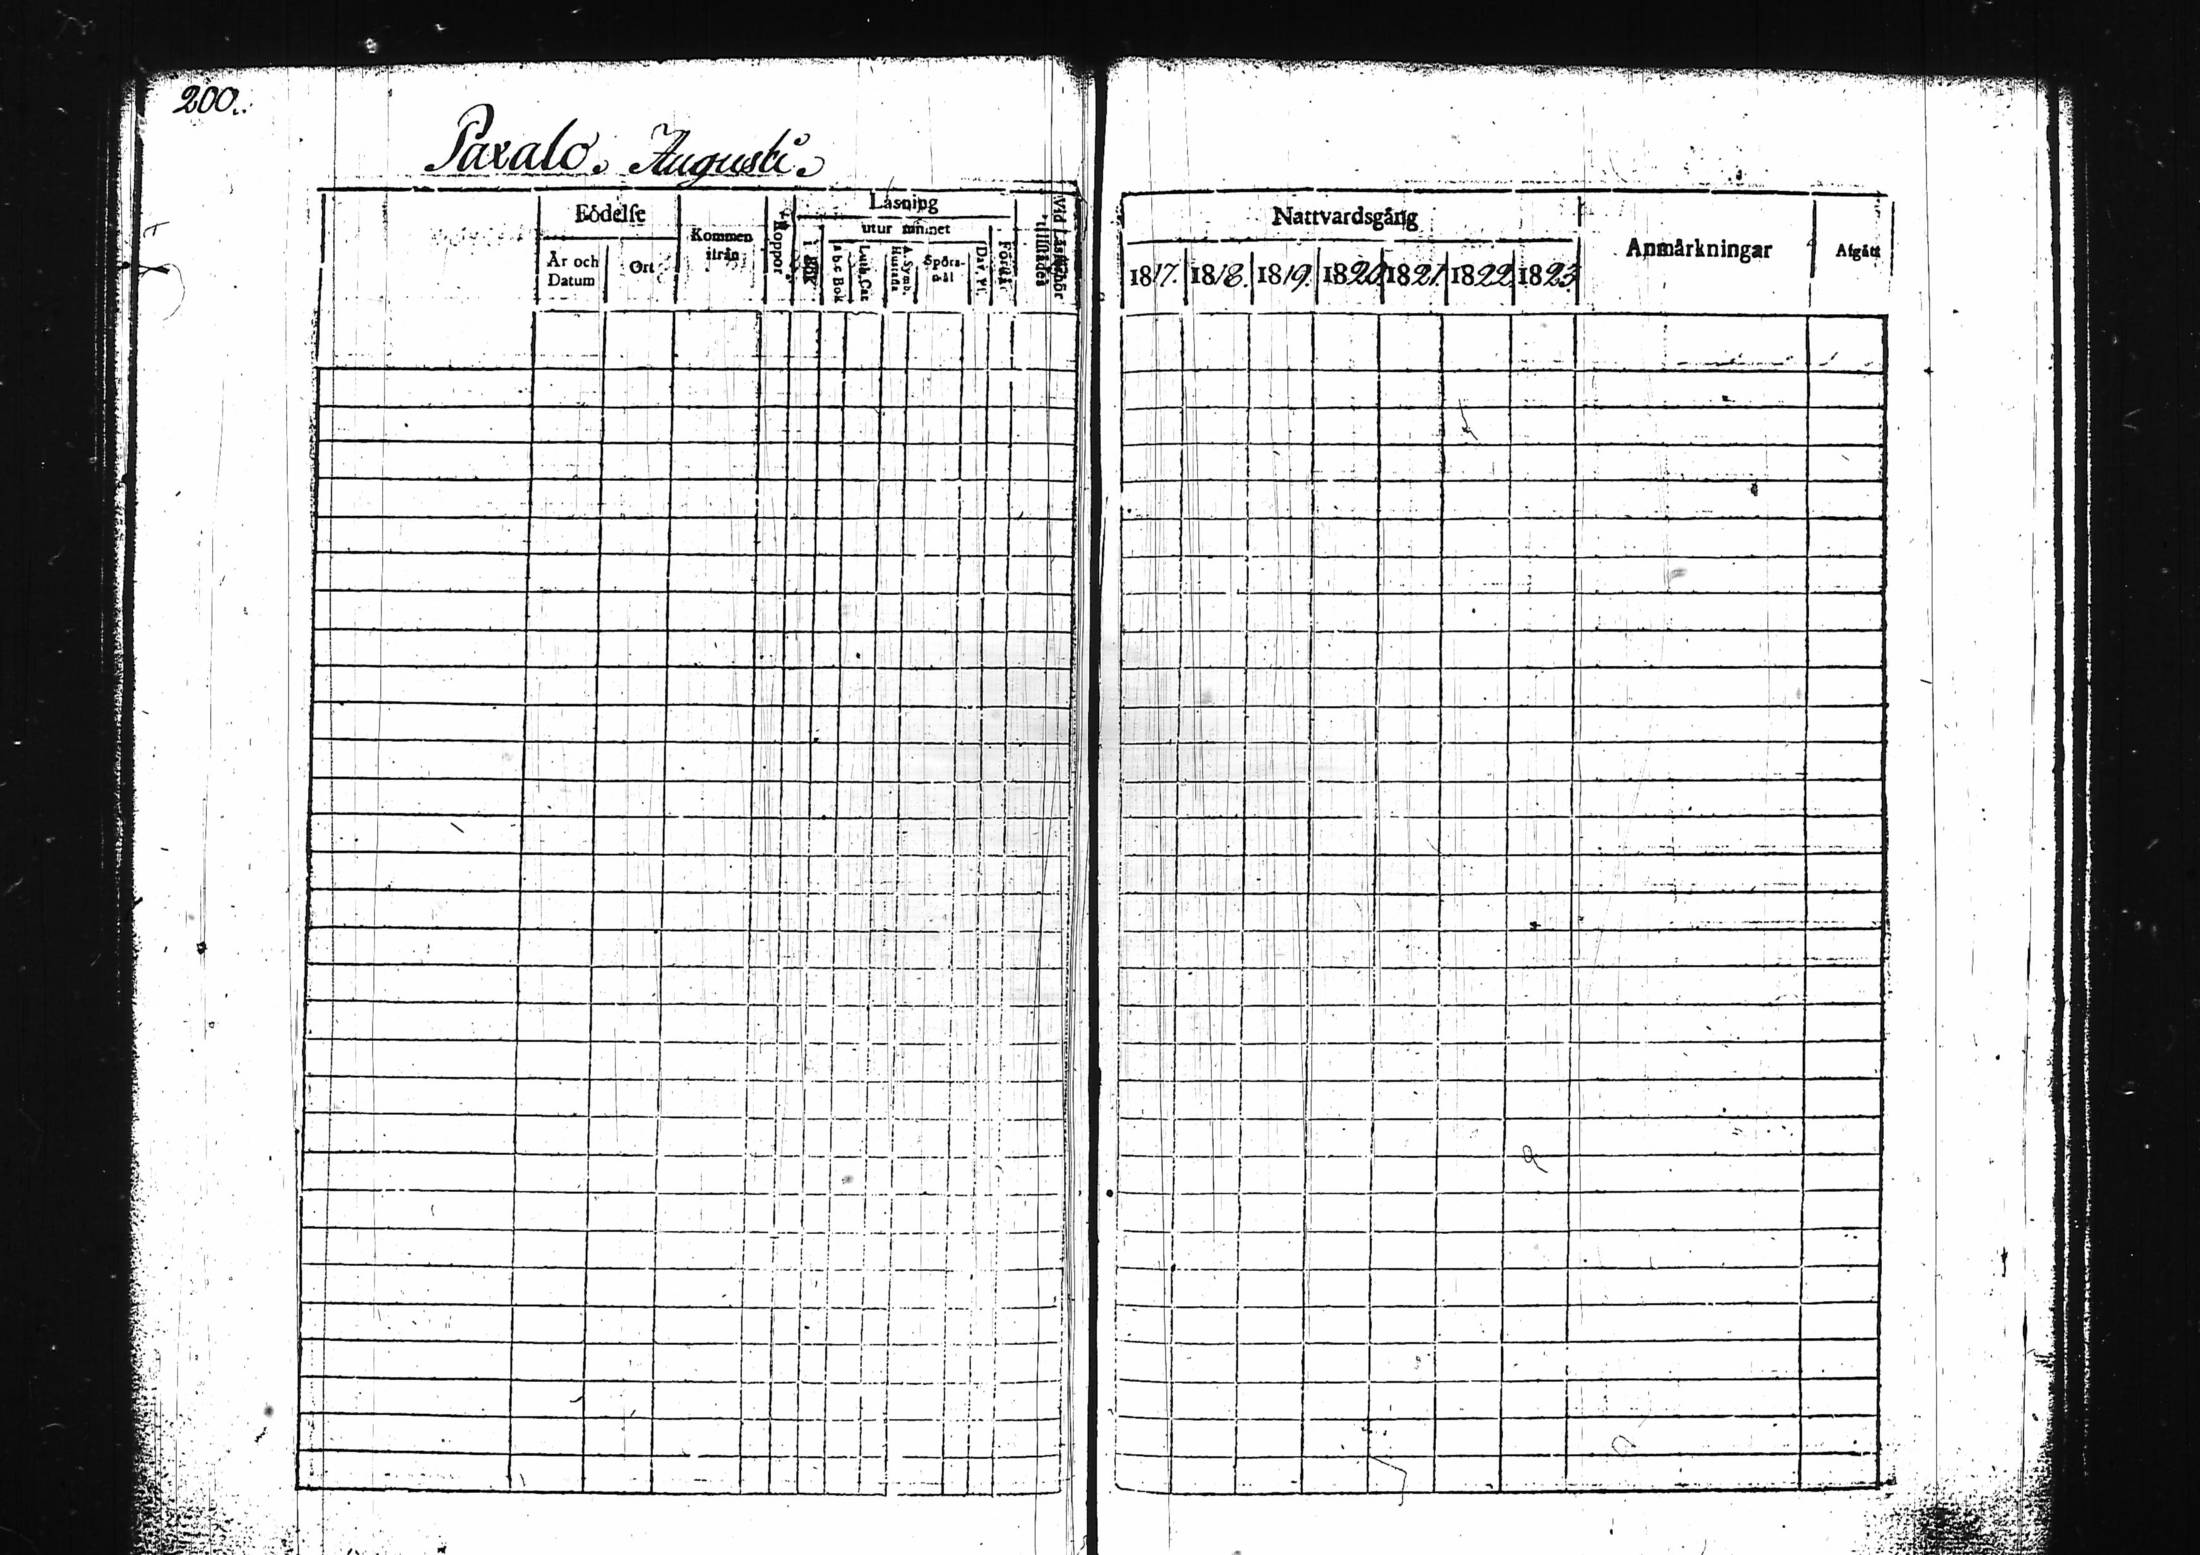 200.
Paxalo. Augusti.
Födelse
År och Datum
Ort
Kommen ifrån
Koppor
Läsning
i Bok
utur minnet
Abc Bok
Luth. Cat
A. Symb. Hustafla
Spörsmål
Dav. Ps.
Förstår
Vid Läsförhör tillstädes
Nattvardsgång
1817. 1818. 1819. 1820. 1821. 1822. 1823.
Anmärkningar
Afgått